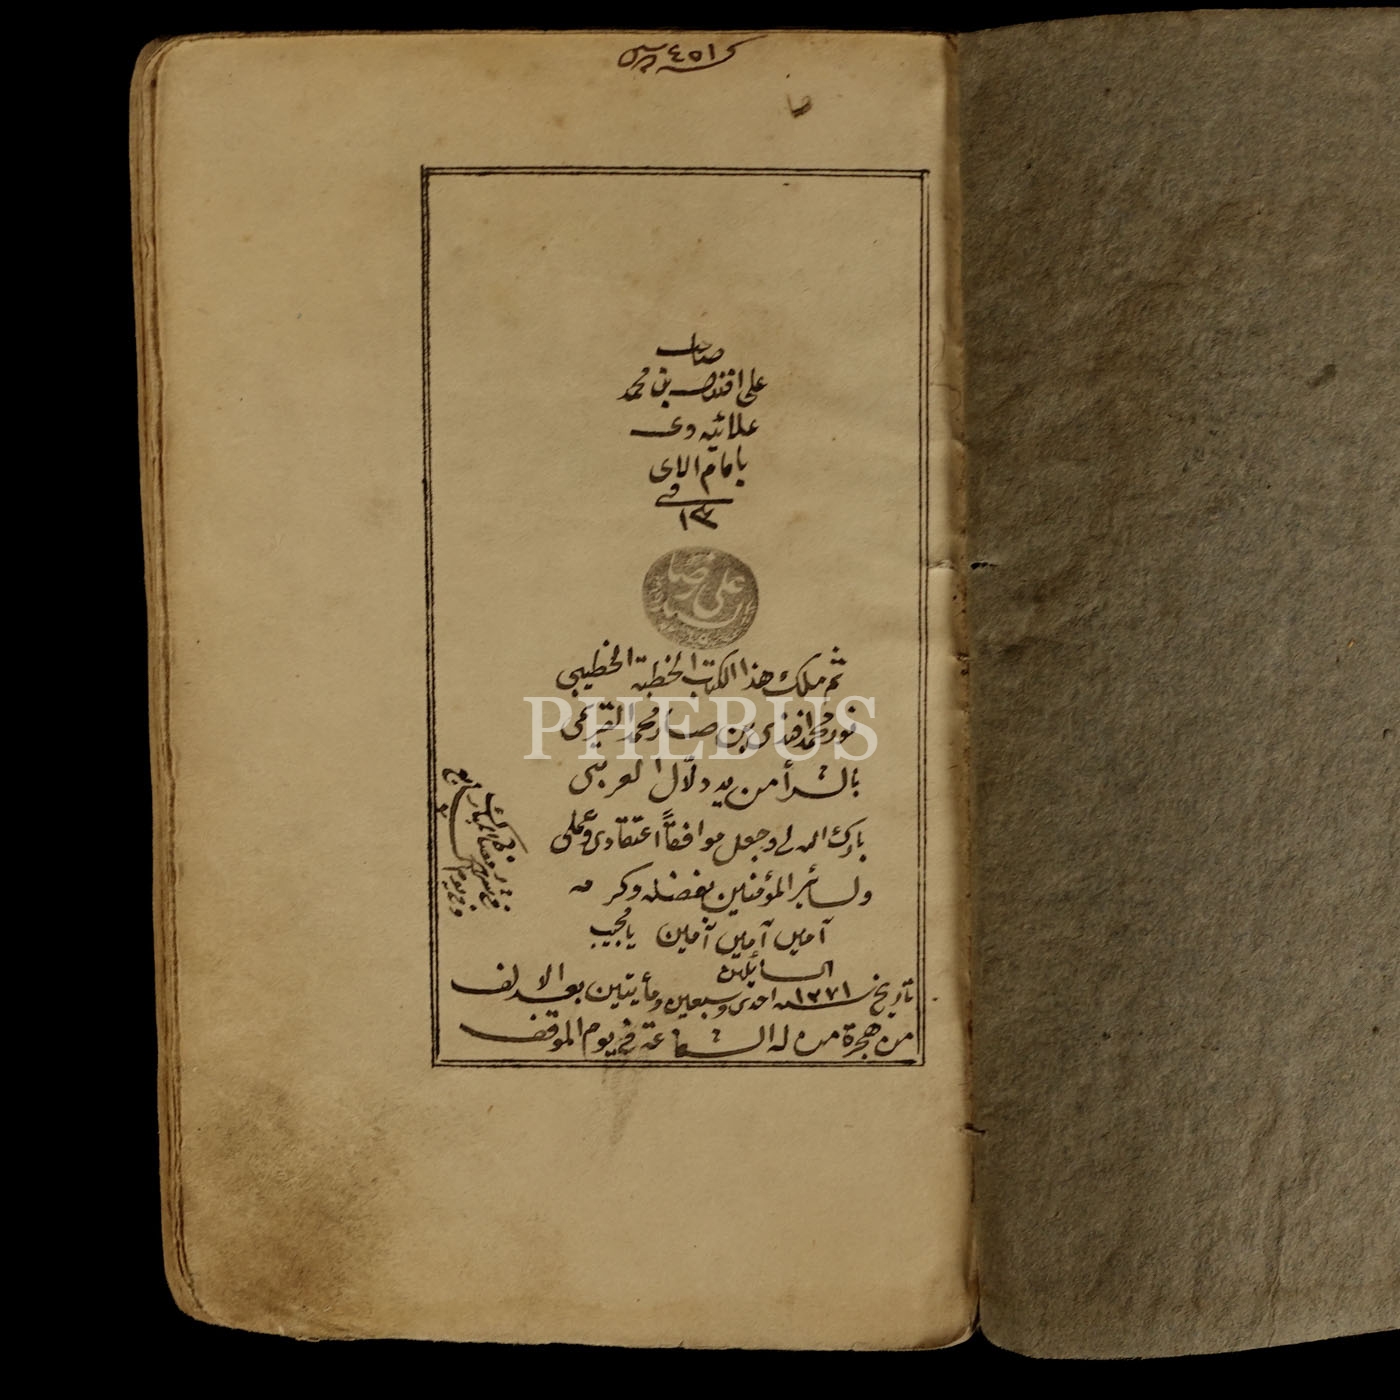 ٤٥١
صاحب
على افندى بن محمد
علائيه وى
بامام الاى
فى
ثم ملك هذا الكتاب الخطبة الخطيبى
نور محمد افندى بن صار محمد القيريمى
PHEBUS
بالشرأ من يد دلّال العربى
بارك الله لى وجعل موافقاً اعتقادى وعملى
ولسائر المؤمنين بفضله وكرمه
آمين آمين آمين يا مجيب
السائلين
تاريخ سنه ١٢٧١ احدى وسبعين ومأيتين بعد الالف
من هجرة من له الشفاعة فى يوم الموقف
على رضا